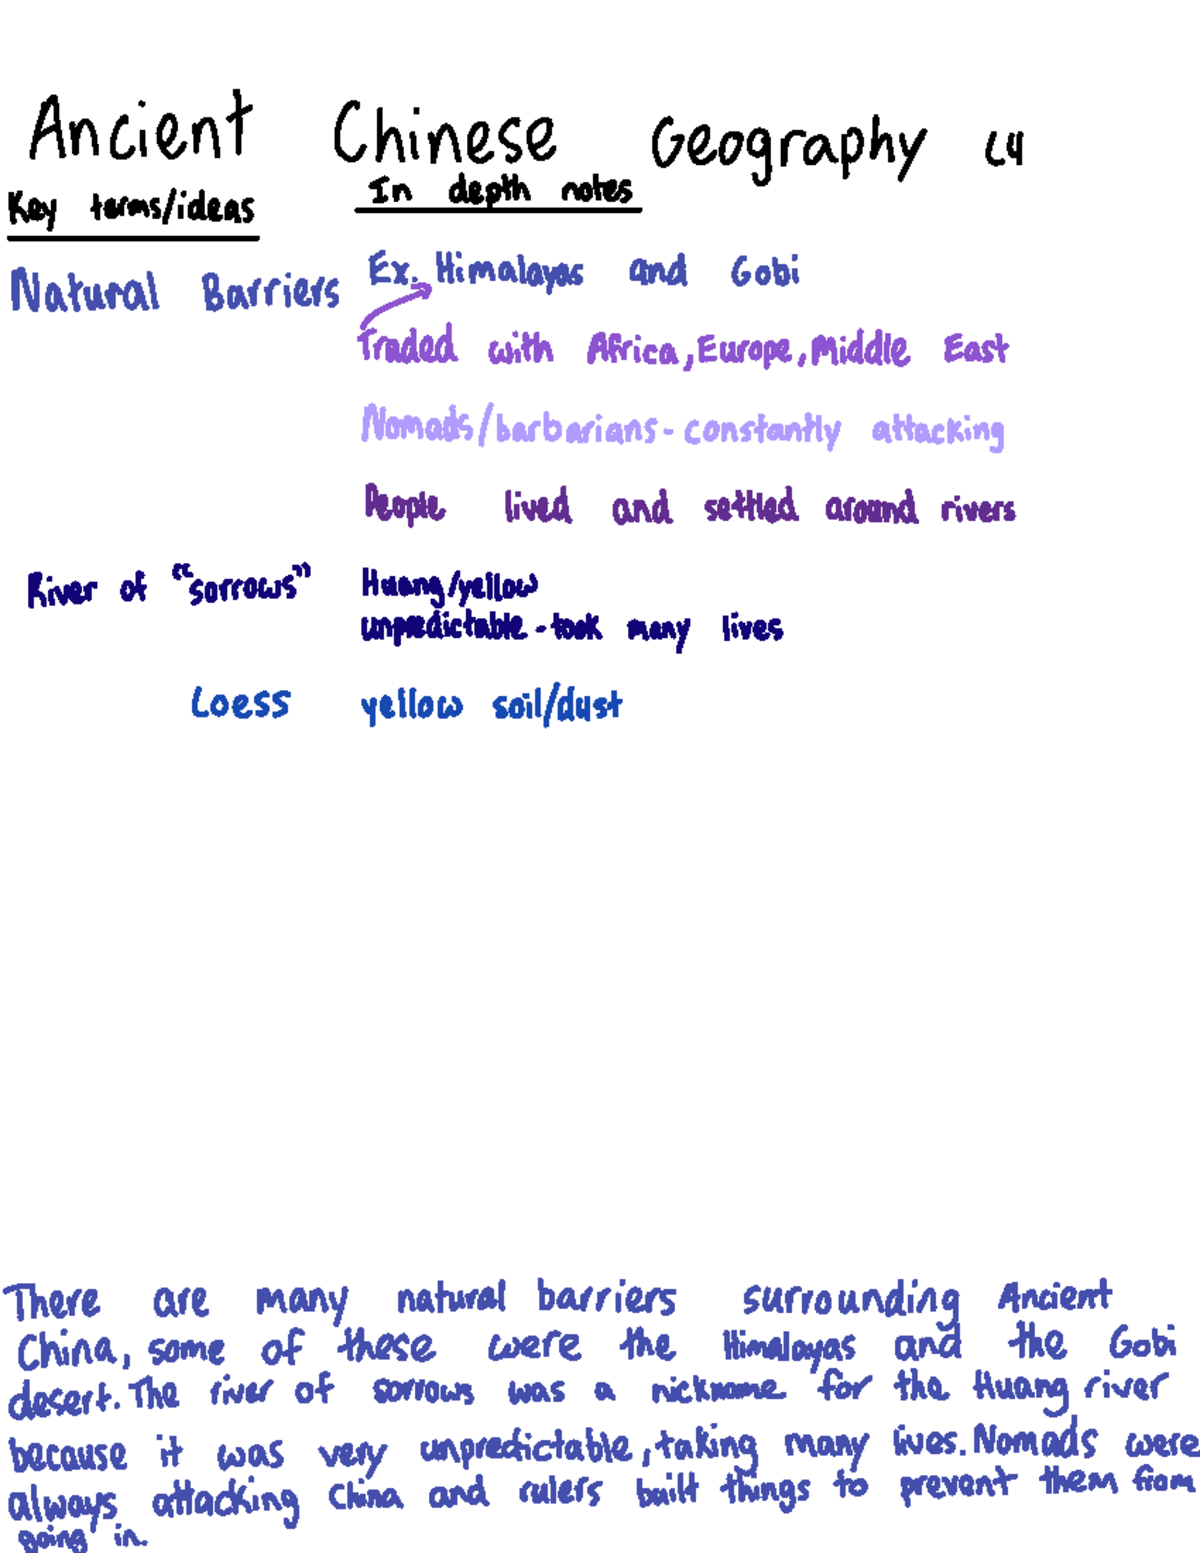 Ancient Chinese Geography L4
Key terms/ideas
In depth notes
Natural Barriers
Ex. Himalayas and Gobi
Traded with Africa, Europe, Middle East
Nomads/barbarians - constantly attacking
People lived and settled around rivers
River of "sorrows"
Huang/yellow
unpredictable - took many lives
Loess
yellow soil/dust
There are many natural barriers surrounding Ancient
China, some of these were the Himalayas and the Gobi
desert. The river of sorrows was a nickname for the Huang river
because it was very unpredictable, taking many lives. Nomads were
always attacking China and rulers built things to prevent them from
going in.